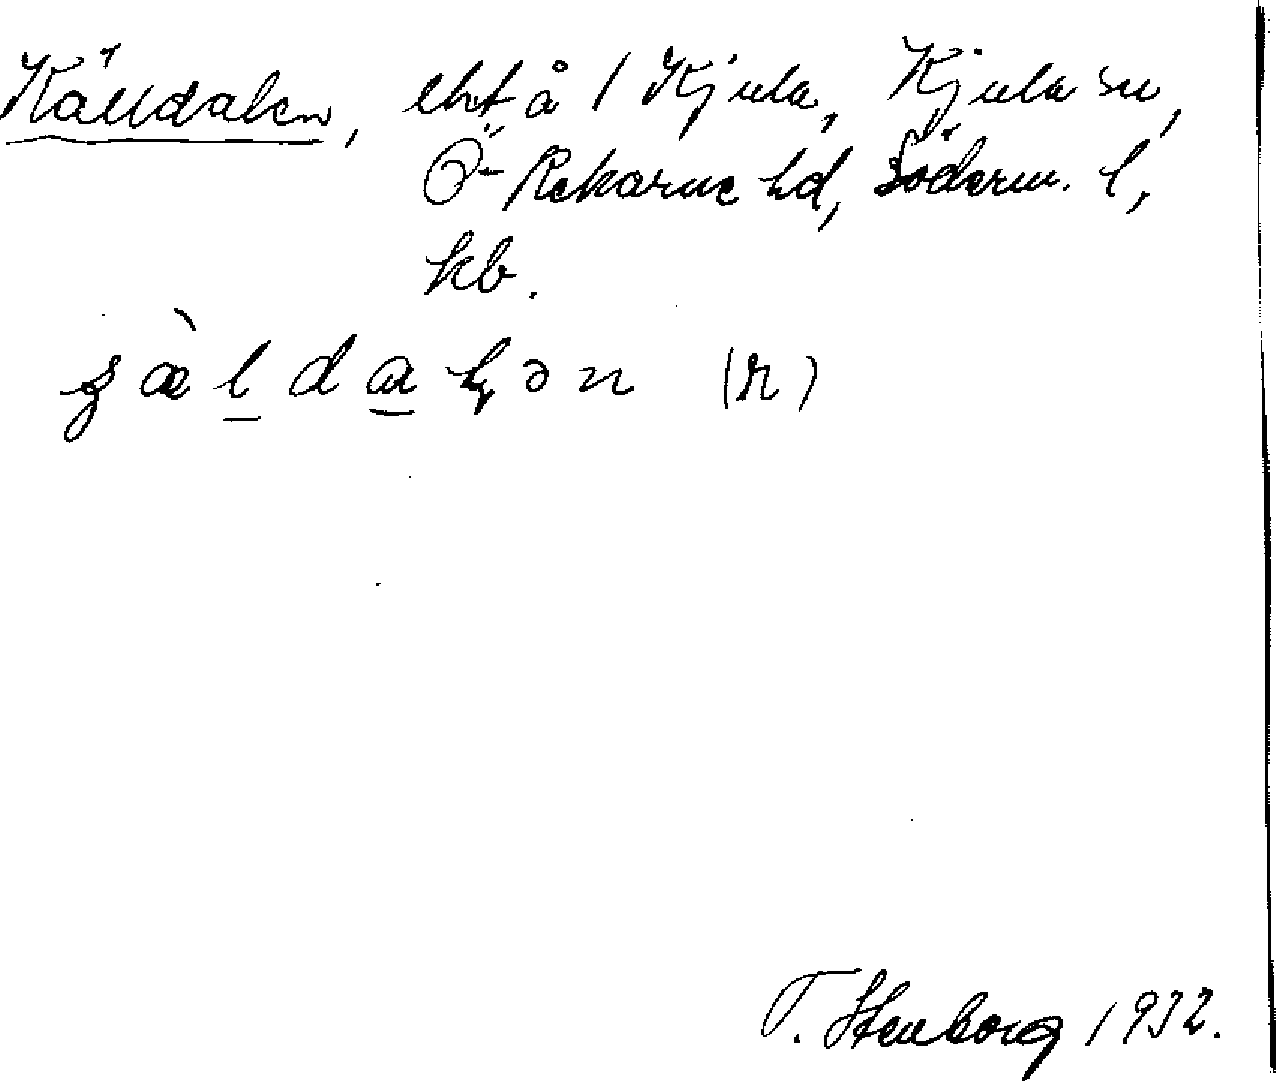 Källdalen, lht å 1 Kjula, Kjula sn,
Ö-Rekarne hd, Söderm. l,
kb.
(r)
T. Stenborg 1932.